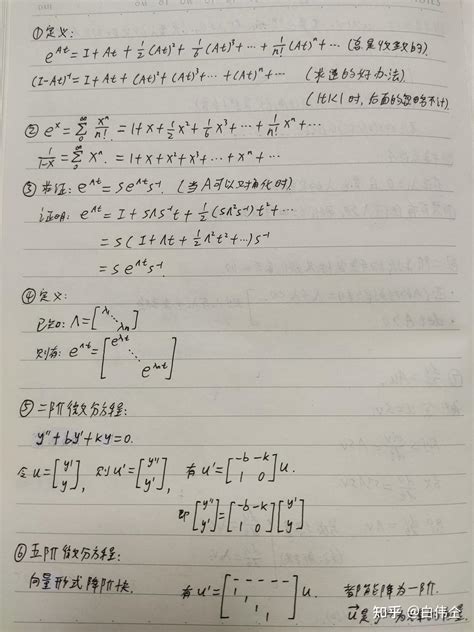 ①定义:
e^{At} = I + At + 1/2 (At)² + 1/6 (At)³ + ⋯ + 1/n! (At)ⁿ + ⋯ (总是收敛的)
(I-At)⁻¹ = I + At + (At)² + (At)³ + ⋯ + (At)ⁿ + ⋯ (求逆的好办法)
(|t|<1时, 后面的忽略不计)
② eˣ = Σ₀^∞ xⁿ/n! = 1 + x + 1/2 x² + 1/6 x³ + ⋯ + 1/n! xⁿ + ⋯
1/(1-x) = Σ₀^∞ xⁿ = 1 + x + x² + x³ + ⋯ + xⁿ + ⋯
③ 求证: e^{At} = S e^{Λt} S⁻¹. (当A可以对角化时)
证明: e^{At} = I + SΛS⁻¹t + 1/2 (SΛ²S⁻¹)t² + ⋯
= S(I + Λt + 1/2 Λ²t² + ⋯)S⁻¹
= S e^{Λt} S⁻¹.
④ 定义:
已知: Λ = [λ₁ ⋱ λn]
则有: e^{Λt} = [e^{λ₁t} ⋱ e^{λnt}]
⑤ 二阶微分方程:
y'' + by' + ky = 0.
令 u = [y' y], 则 u' = [y'' y'], 有 u' = [-b -k 1 0] u.
即 [y'' y'] = [-b -k 1 0] [y' y]
⑥ 五阶微分方程:
向量形式降阶快. 有 u' = [- - - - - 1 1 1 1] u. 降为一阶.
知乎 @白伟仝